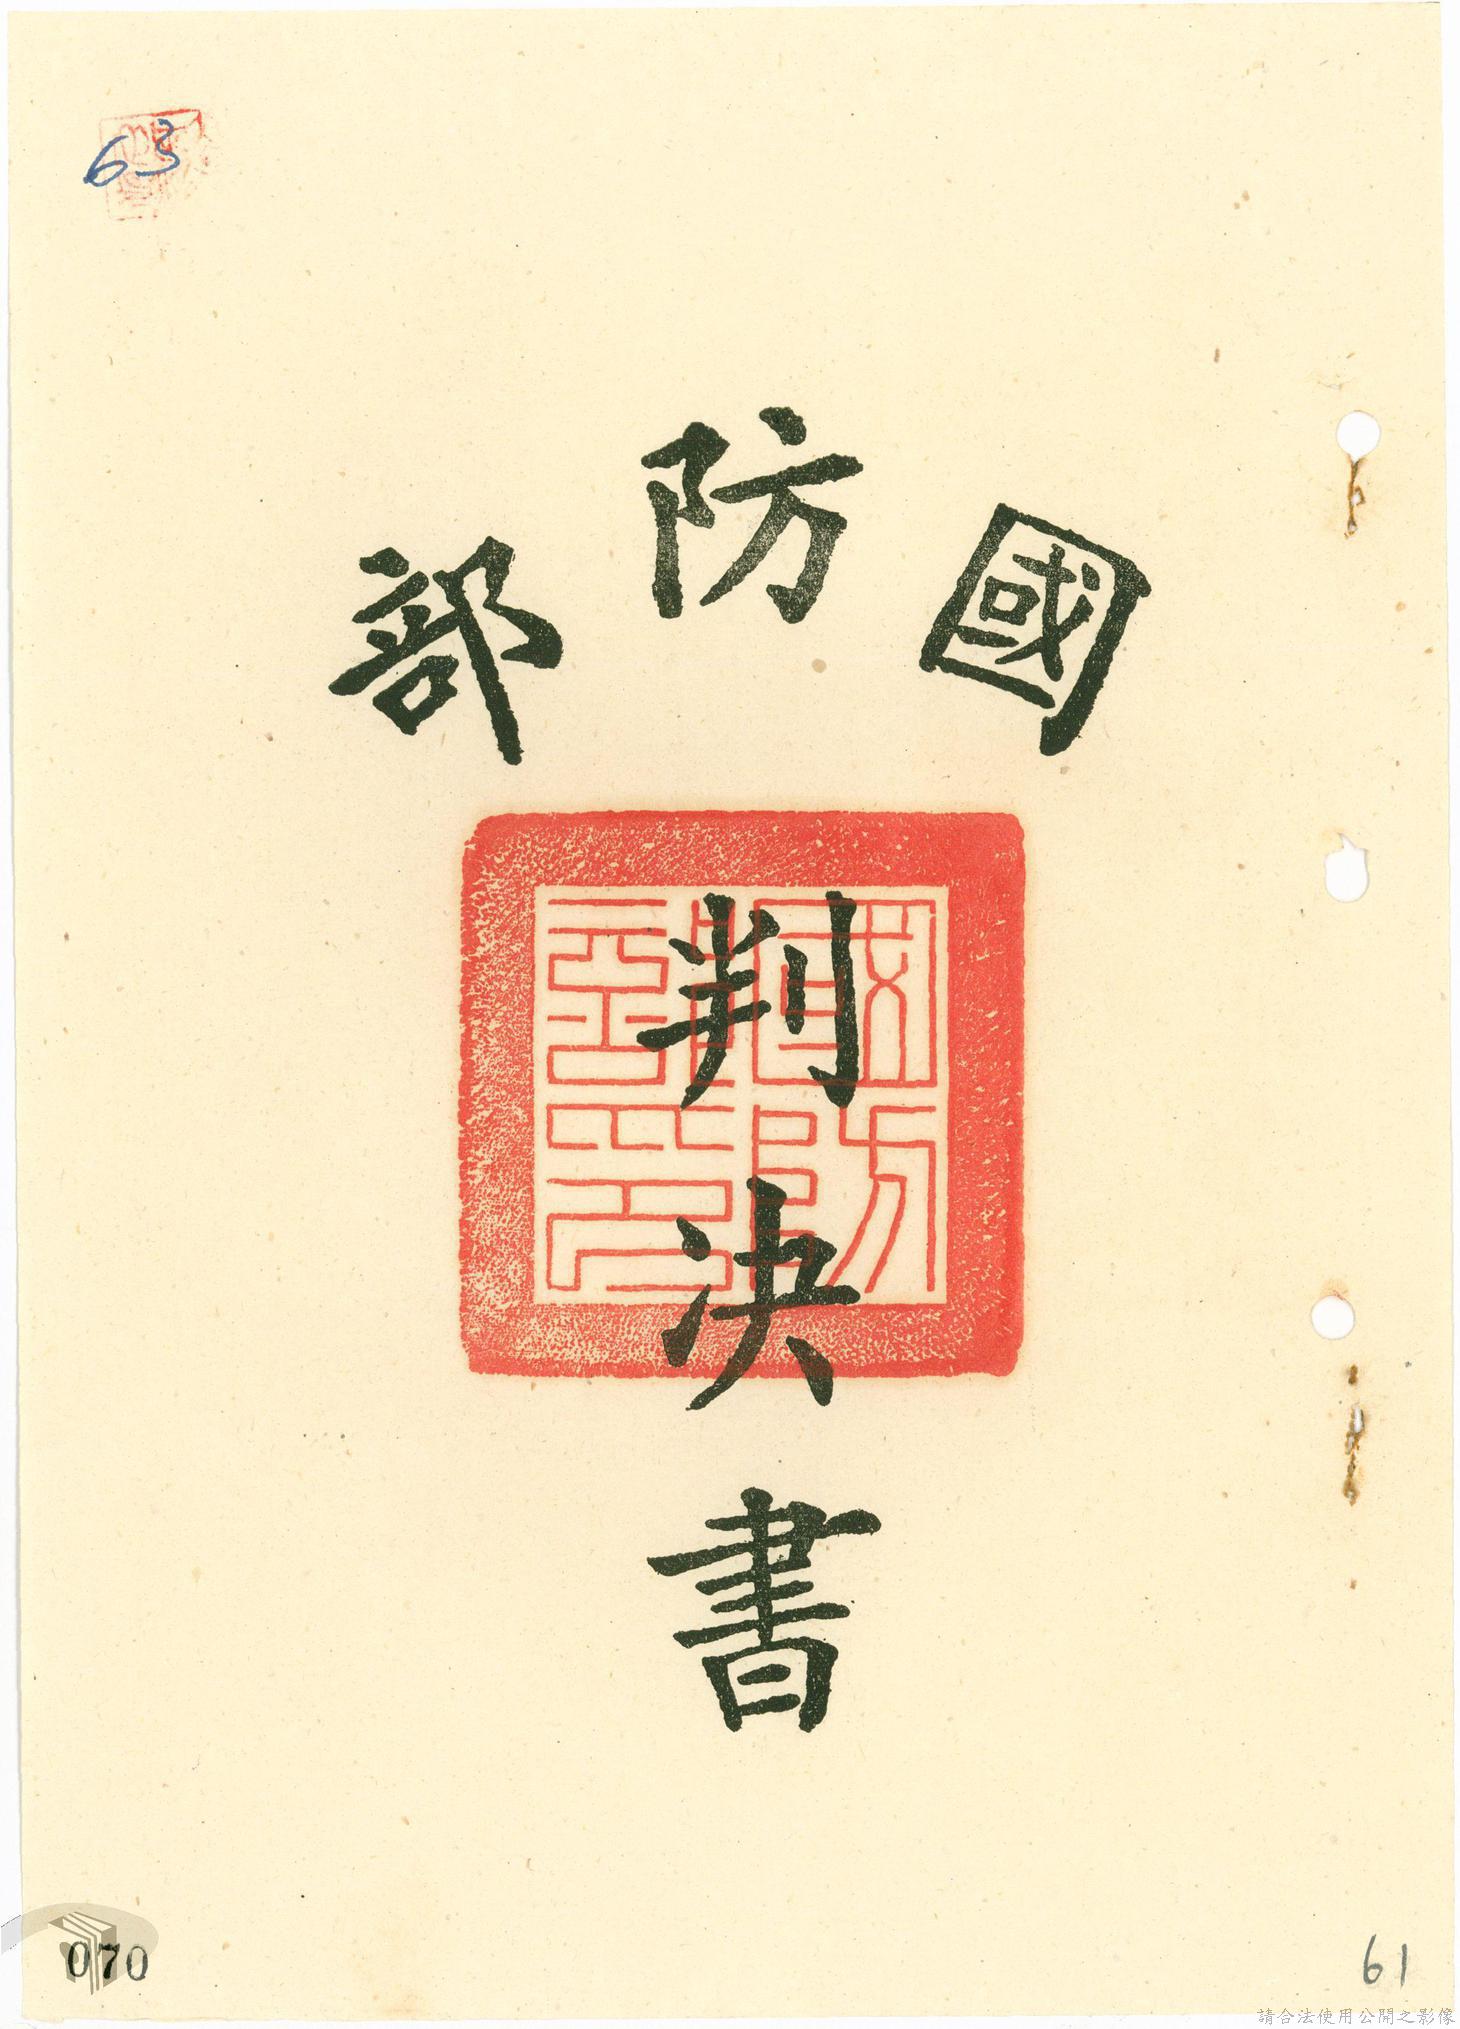 63
國防部
判決書
國防部印
070
61
請合法使用公開之影像